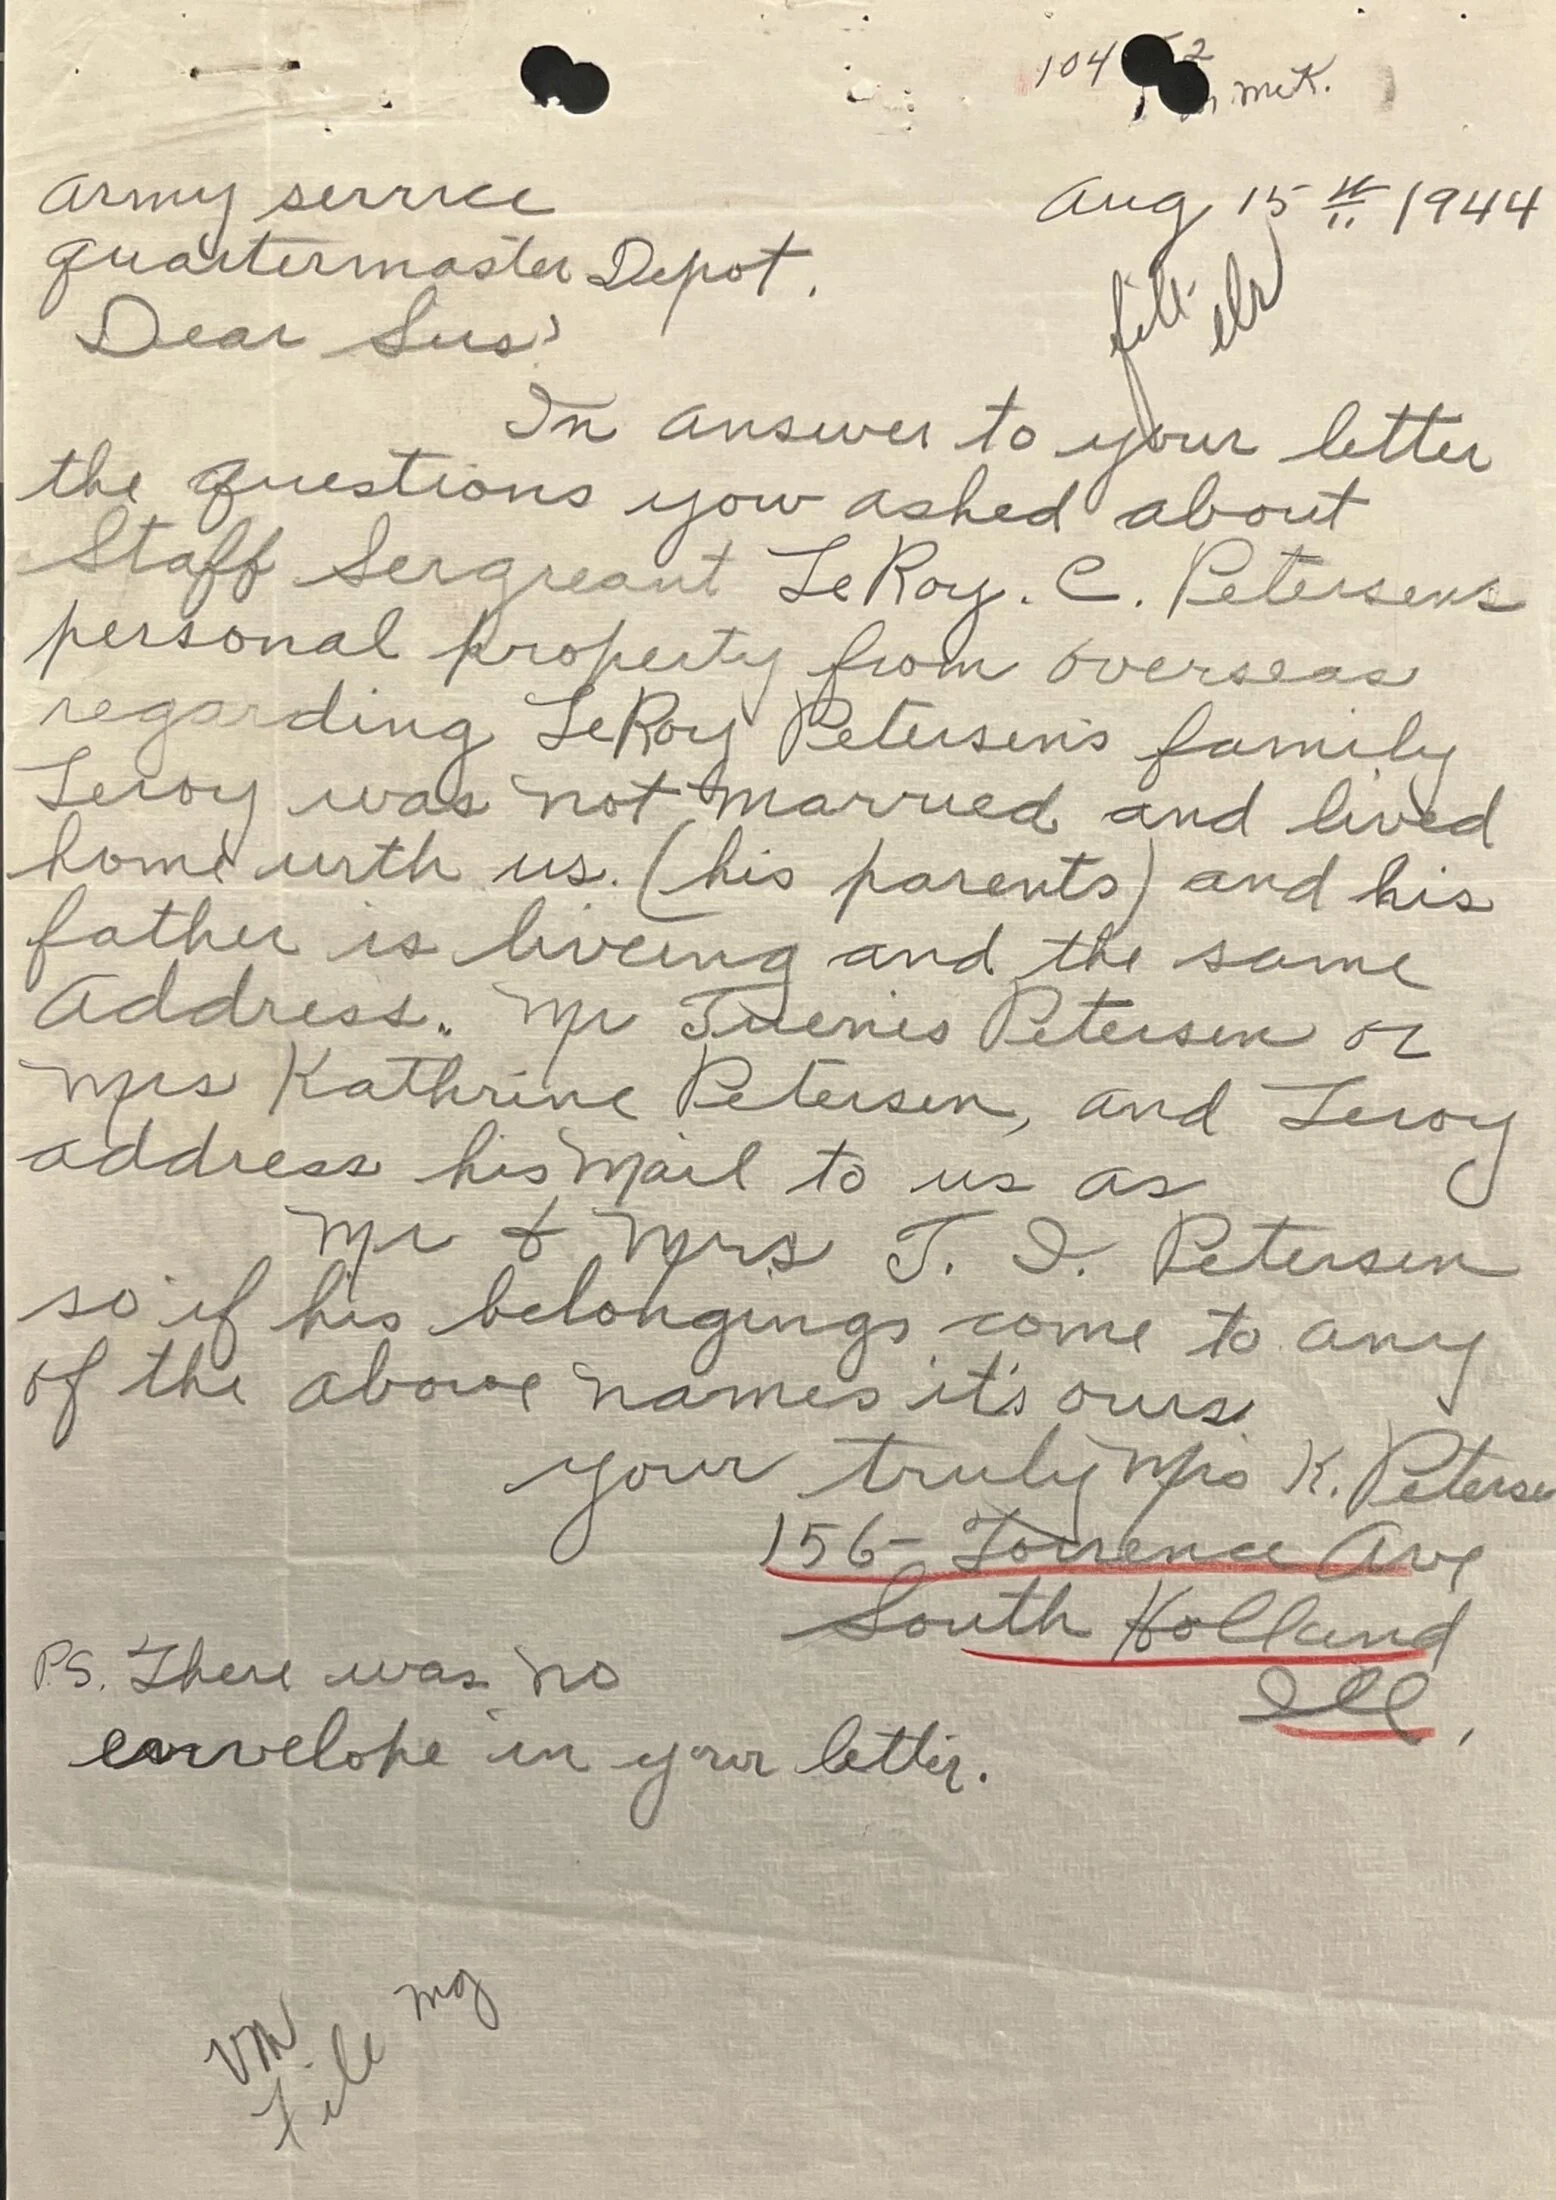 104 2
McK.
Army service Aug 15th 1944
quartermaster Depot.
file elr
Dear Sirs'
In answer to your letter
the questions you asked about
Staff Sergreant LeRoy. C. Petersens
personal property from overseas
regarding LeRoy Petersen's family
Leroy was not married and lived
home with us. (his parents) and his
father is liveing and the same
Address.. Mr Tuenis Petersen or
Mrs Kathrine Petersen, and Leroy
address his mail to us as
Mr & Mrs T. I. Petersen
so if his belongings come to any
of the above names it's ours.
your truly Mrs K. Peterse
156- Torrence Ave
South Holland
Ill,
P.S. There was no
envelope in your letter.
VM
File mg